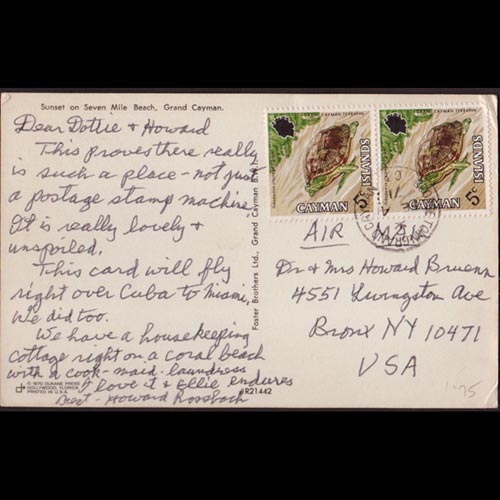 Sunset on Seven Mile Beach, Grand Cayman.
Dear Dottie & Howard
This proves there really
is such a place - not just
a postage stamp machine.
It is really lovely &
unspoiled.
This card will fly
right over Cuba to Miami,
We did too.
We have a housekeeping
cottage right on a coral beach
with a cook-maid-laundress
I love it & Ellie endures
Best - Howard Rossbach
© 1970 DUKANE PRESS
HOLLYWOOD, FLORIDA
PRINTED IN U.S.A.
R21442
Foster Brothers Ltd., Grand Cayman B.W.I.
CAYMAN TERRAPIN
CAYMAN
ISLANDS
5c
CAYMAN TERRAPIN
CAYMAN
ISLANDS
5c
GEORGETOWN
AIR MAIL
Dr & Mrs Howard Bruenn
4551 Livingston Ave
Bronx NY 10471
USA
1.75